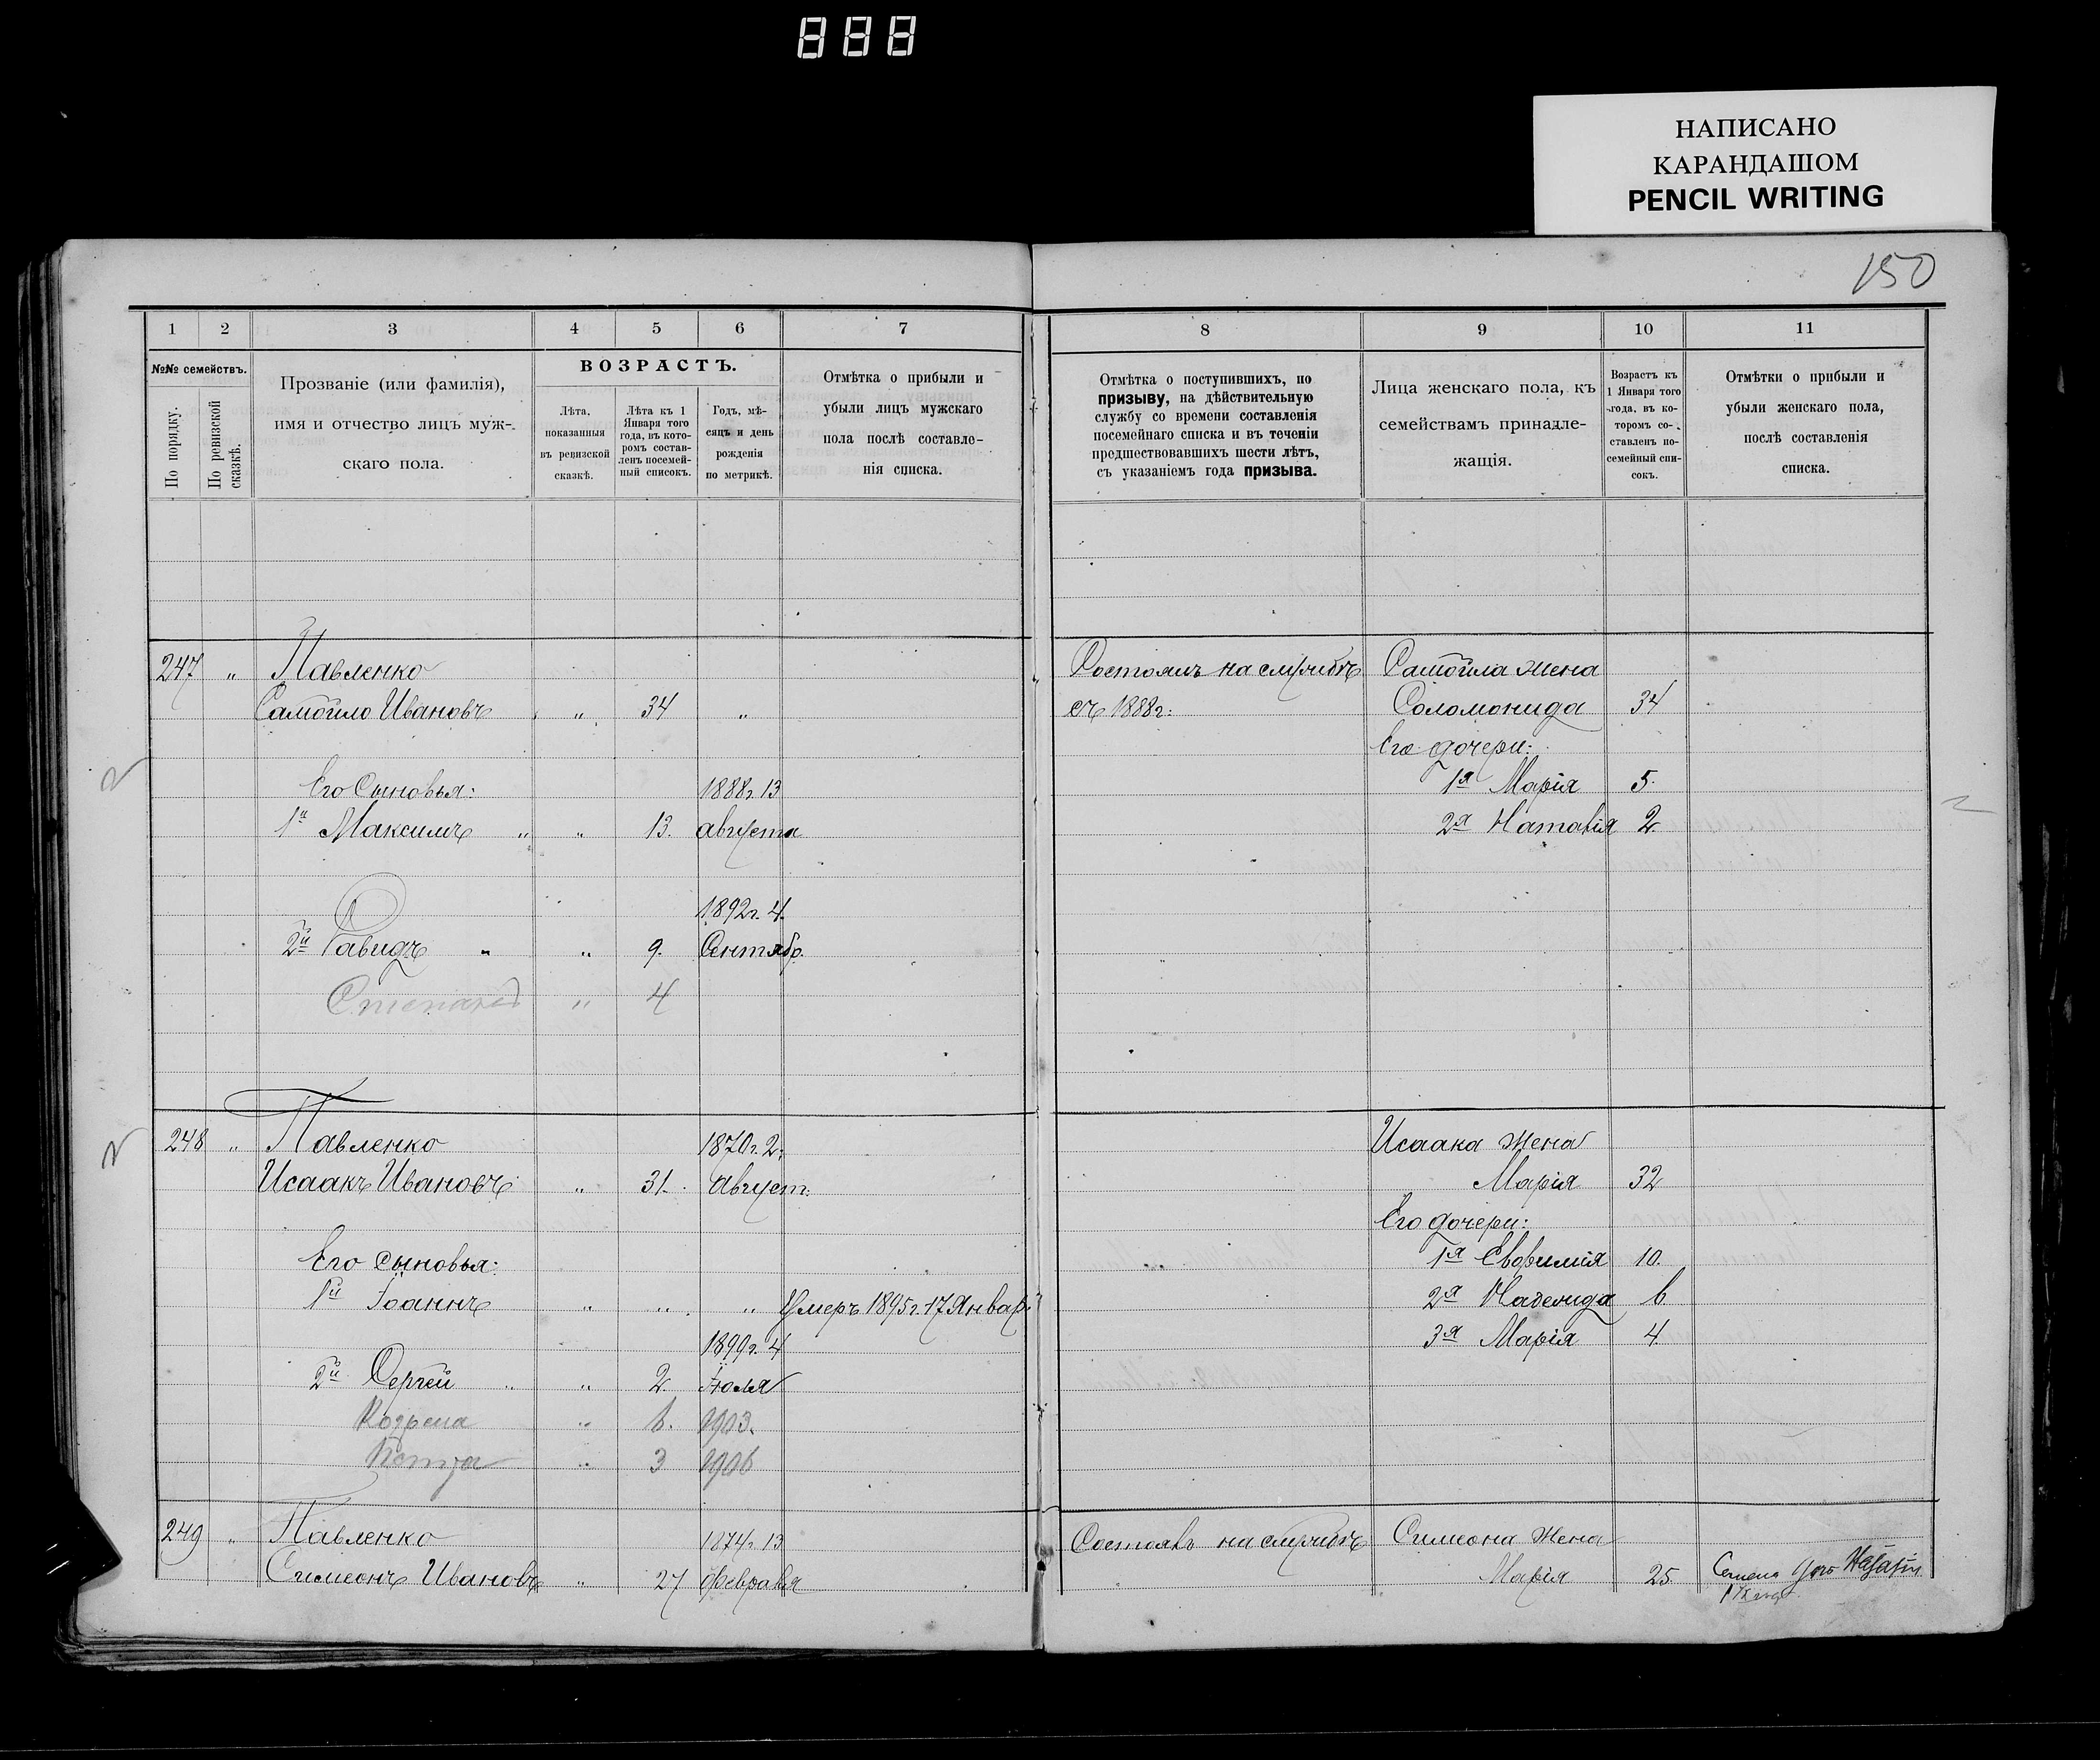 888
НАПИСАНО
КАРАНДАШОМ
PENCIL WRITING
150
1 2 3 4 5 6 7
№№ семействъ.
По порядку.
По ревизской сказкѣ.
Прозваніе (или фамилія),
имя и отчество лицъ муж-
скаго пола.
ВОЗРАСТЪ.
Лѣта,
показанныя
въ ревизской
сказкѣ.
Лѣта къ 1
Января того
года, въ кото-
ромъ состав-
ленъ посемей-
ный списокъ.
Годъ, мѣ-
сяцъ и день
рожденія
по метрикѣ.
Отмѣтка о прибыли и
убыли лицъ мужскаго
пола послѣ составле-
нія списка.
247 " Павленко
Самойло Ивановъ " 34 "
Его Сыновья: 1888г. 13
1й Максимъ " " 13. августа
1892г. 4.
2й Давидъ " " 9. Сентябр.
Степанъ " 4
248 " Павленко 1870г. 2.
Исаакъ Ивановъ " 31. Август.
Его сыновья:
1й Іоаннъ " " " Умеръ 1895г. 17 Январ.
1899г. 4
2й Сергей " " 2. Іюля
" 6. 1903.
" 3 1906
249 " Павленко 1874г. 13
Симеонъ Ивановъ " 27 февраля
8 9 10 11
Отмѣтка о поступившихъ, по
призыву, на дѣйствительную
службу со времени составленія
посемейнаго списка и въ теченіи
предшествовавшихъ шести лѣтъ,
съ указаніемъ года призыва.
Лица женскаго пола, къ
семействамъ принадле-
жащія.
Возрастъ къ
1 Января того
года, въ ко-
торомъ со-
ставленъ по-
семейный спи-
сокъ.
Отмѣтки о прибыли и
убыли женскаго пола,
послѣ составленія
списка.
Состоялъ на службѣ Самойла жена
съ 1888г: Соломонида 34
Его дочери:
1я Марія 5.
2я Наталія 2.
Исаака жена
Марія 32
Его дочери:
1я Евфимія 10.
2я Надежида 6
3я Марія 4
Состоялъ на службѣ Симеона жена
Марія 25.